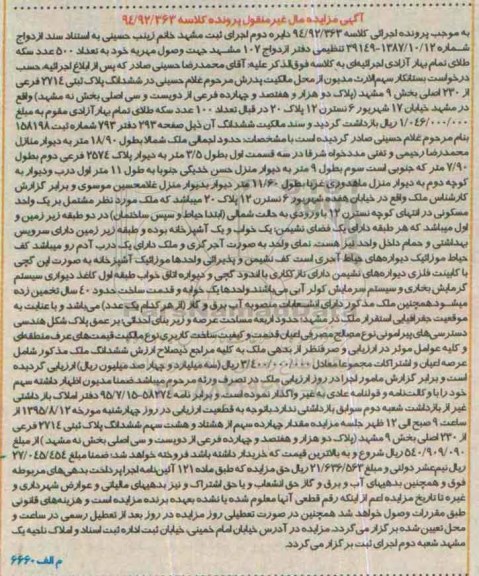 آگهی مزایده مال غیرمنقول پرونده کلاسه ۹۴/۹۲/۳۶۳
به موجب پرونده اجرائی کلاسه ۹۴/۹۲/۳۶۳ دایره دوم اجرای ثبت مشهد خانم زینب حسینی به استناد سند ازدواج
شماره ۳۹۱۴۹-۱۳۸۷/۱۰/۱۲ تنظیمی دفتر ازدواج ۱۰۷ مشهد جهت وصول مهریه خود به تعداد ۵۰۰ عدد سکه
طلای تمام بهار آزادی اجرائیه‌ای به کلاسه فوق‌الذکر علیه آقای محمدرضا حسینی صادر که پس از ابلاغ اجرائیه حسب
درخواست بستانکار سهم‌الارث مدیون از محل مالکیت پدرش مرحوم غلام حسینی در ششدانگ پلاک ثبتی ۲۷۱۴ فرعی
از ۲۳۰ اصلی بخش ۹ مشهد (پلاک دو هزار و هفتصد و چهارده فرعی از دویست و سی اصلی بخش نه مشهد) واقع
در مشهد خیابان ۱۷ شهریور ۶ نسترن ۱۲ پلاک ۲۰ در قبال تعداد ۱۰۰ عدد سکه طلای تمام بهار آزادی مقوم به مبلغ
۱/۰۴۶/۰۰۰/۰۰۰ ریال بازداشت گردید و سند مالکیت ششدانگ آن ذیل صفحه ۲۹۳ دفتر ۷۹۳ شماره ثبت ۱۵۸۱۹۸
بنام مرحوم غلام حسینی صادر گردیده است با مشخصات: حدود اجمالی ملک شمالا بطول ۱۸/۹۰ متر به دیوار منازل
محمدرضا رحیمی و تفتی مددخواه شرقا در سه قسمت اول بطول ۳/۵ متر به دیوار پلاک ۲۵۷۴ فرعی دوم بطول
۷/۹۰ متر که جنوبی است سوم بطول ۹ متر به دیوار منزل حسن خدیگی جنوبا به طول ۱۱ متر اول درب ودیوار به
کوچه دوم به دیوار منزل ماهدوری غربا بطول ۱۱/۶۰ متر دیوار بدیوار منزل غلامحسین موسوی و برابر گزارش
کارشناس ملک واقع در خیابان هفده شهریور ۶ نسترن ۱۲ پلاک ۲۰ میباشد که ملک مورد نظر مشتمل بر یک واحد
مسکونی در انتهای کوچه نسترن ۱۲ با ورودی به حالت شمالی (ابتدا حیاط و سپس ساختمان) در دو طبقه زیر زمین و
اول میباشد که هر طبقه دارای یک فضای نشیمن، یک خواب و یک آشپزخانه بوده و طبقه زیر زمین دارای سرویس
بهداشتی و حمام داخل واحد نیز هست. نمای واحد به صورت آجر گری و ملک دارای یک درب آدم رو میباشد کف
حیاط موزائیک دیوارهای حیاط آجری است کف نشیمن و پذیرائی واحدها موزائیک آشپزخانه به صورت اپن گچی
با کابینت فلزی دیواره‌های نشیمن دارای نازکاری با اندود گچی و دیواره اتاق خواب طبقه اول کاغذ دیواری سیستم
گرمایش بخاری و سیستم سرمایش کولر آبی می‌باشند واحدها یک خوابه و قدمت ساخت حدود ۴۰ سال تخمین زده
میشود همچنین ملک مذکور دارای انشعابات منصوبه آب برق و گاز (از هر کدام یک عدد) می‌باشد و با عنایت به
موقعیت جغرافیایی استقرار ملک در مشهد حدود اربعه مساحت عرصه و زیر بنای احداثی بر عمق پلاک شکل هندسی
دسترسی‌های پیرامونی نوع مصالح مصرفی اعیان قدمت و کیفیت ساخت کاربری نوع مالکیت قیمت‌های عرف منطقه‌ای
و کلیه عوامل موثر در ارزیابی و صرفنظر از بدهی ملک به کلیه مراجع ذیصلاح ارزش ششدانگ ملک مذکور شامل
عرصه اعیان و اشتراکات مجموعا معادل ۳/۴۰۰/۰۰۰/۰۰۰ ریال (سه میلیارد و چهار صد میلیون ریال) ارزیابی گردیده
است و برابر گزارش مامور اجرا در روز ارزیابی ملک در تصرف ورثه مرحوم میباشد ضمنا مدیون اظهار داشته سهم
خود را با وکالت‌نامه و قولنامه عادی به غیر واگذار نموده است. و برابر نامه ۵۸۲۷۴-۹۵/۷/۱۵ دفتر املاک بازداشتی
غیر از بازداشت شعبه دوم سوابق بازداشتی ندارد. باتوجه به قطعیت ارزیابی در روز چهارشنبه مورخه ۱۳۹۵/۸/۱۲ از
ساعت ۹ صبح الی ۱۲ ظهر جلسه مزایده مقدار چهارده سهم از هشتاد و هشت سهم ششدانگ پلاک ثبتی ۲۷۱۴ فرعی
از ۲۳۰ اصلی بخش ۹ مشهد (پلاک دو هزار و هفتصد و چهارده فرعی از دویست و سی اصلی بخش نه مشهد) از مبلغ
۵۴۰/۹۰۹/۰۹۰ ریال شروع و به بالاترین قیمت که خریدار داشته باشد فروخته خواهد شد. ضمنا مبلغ ۲۷/۰۴۵/۴۵۴
ریال نیم‌عشر دولتی و مبلغ ۲۱/۶۳۶/۵۶۳ ریال حق مزایده که طبق ماده ۱۲۱ آئین‌نامه اجرا پرداخت بدهی‌های مربوطه
فوق و همچنین بدهیهای آب و برق و گاز حق انشعاب و یا حق اشتراک و نیز بدهیهای مالیاتی و عوارض شهرداری و
غیره تا تاریخ مزایده اعم از اینکه رقم قطعی آنها معلوم شده یا نشده بعهده برنده مزایده است و هزینه‌های قانونی
طبق مقررات وصول خواهد شد. همچنین در صورت تعطیلی روز مزایده در روز بعد از تعطیل رسمی در ساعت و
محل تعیین شده برگزار می‌گردد. مزایده در آدرس خیابان امام خمینی خیابان ثبت اداره ثبت اسناد و املاک ناحیه یک
مشهد شعبه دوم اجرای ثبت برگزار می گردد.
م الف ۶۶۶۰